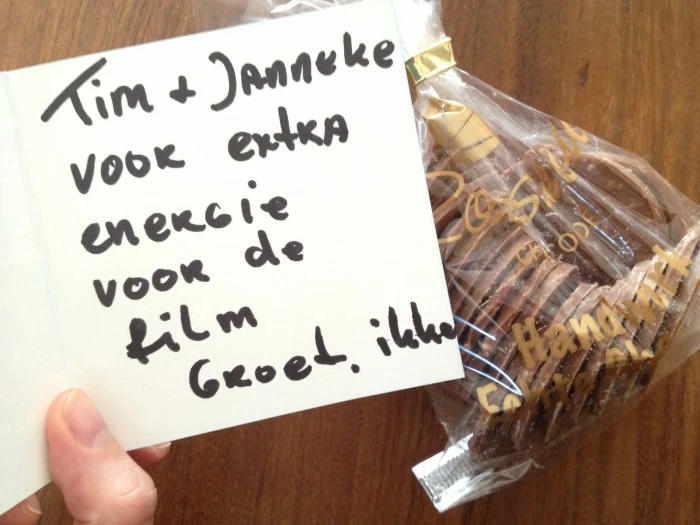 Tim + Janneke
voor extra
energie
voor de
film
Groet, ikke
Hand